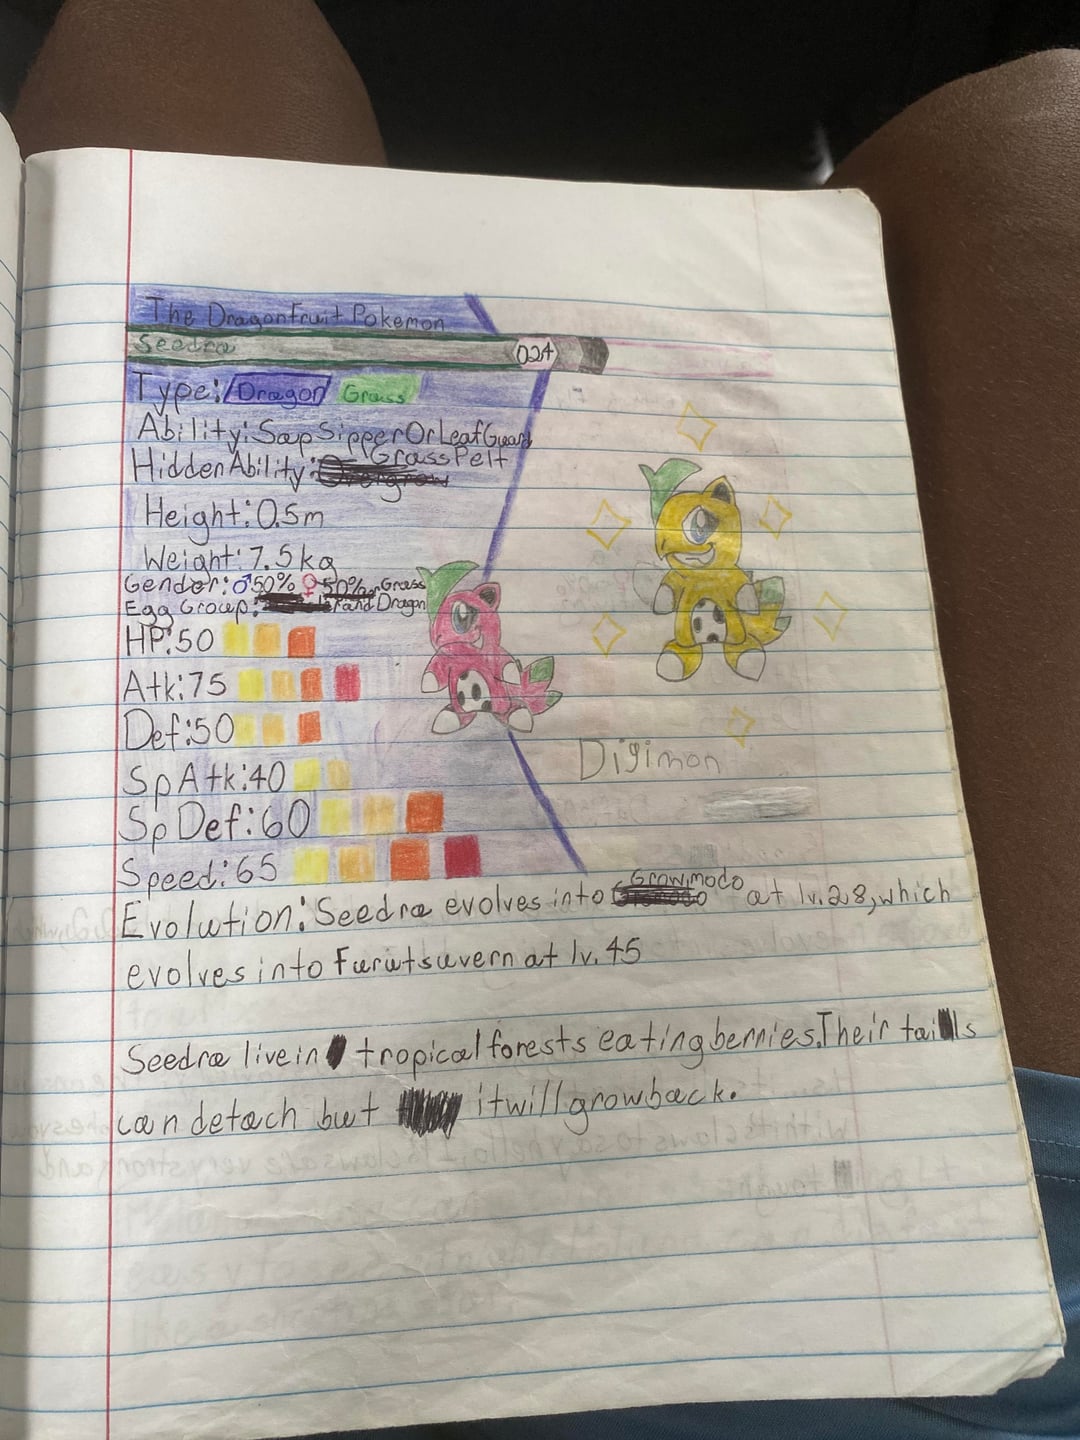 The Dragonfruit Pokemon
Seedra 024
Type: Dragon Grass
Ability: Sap Sipper Or Leaf Guard
Hidden Ability: Grass Pelt
Height: 0.5m
Weight: 7.5kg
Gender: ♂50% ♀50%
Egg Group: Grass and Dragon
HP: 50
Atk: 75
Def: 50
Sp Atk: 40
Sp Def: 60
Speed: 65
Digimon
Evolution: Seedra evolves into Growmodo at lv. 28, which
evolves into Furutsuvern at lv. 45
Seedra live in tropical forests eating berries. Their tails
can detach but it will grow back.